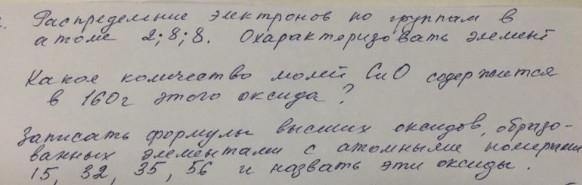 Распределение электронов по группам в
атоме 2; 8; 8. Охарактеризовать элемент
Какое количество молей CuO содержится
в 160г этого оксида?
Записать формулы высших оксидов, образо-
ванных элементами с атомными номерами
15, 32, 35, 56 и назвать эти оксиды.